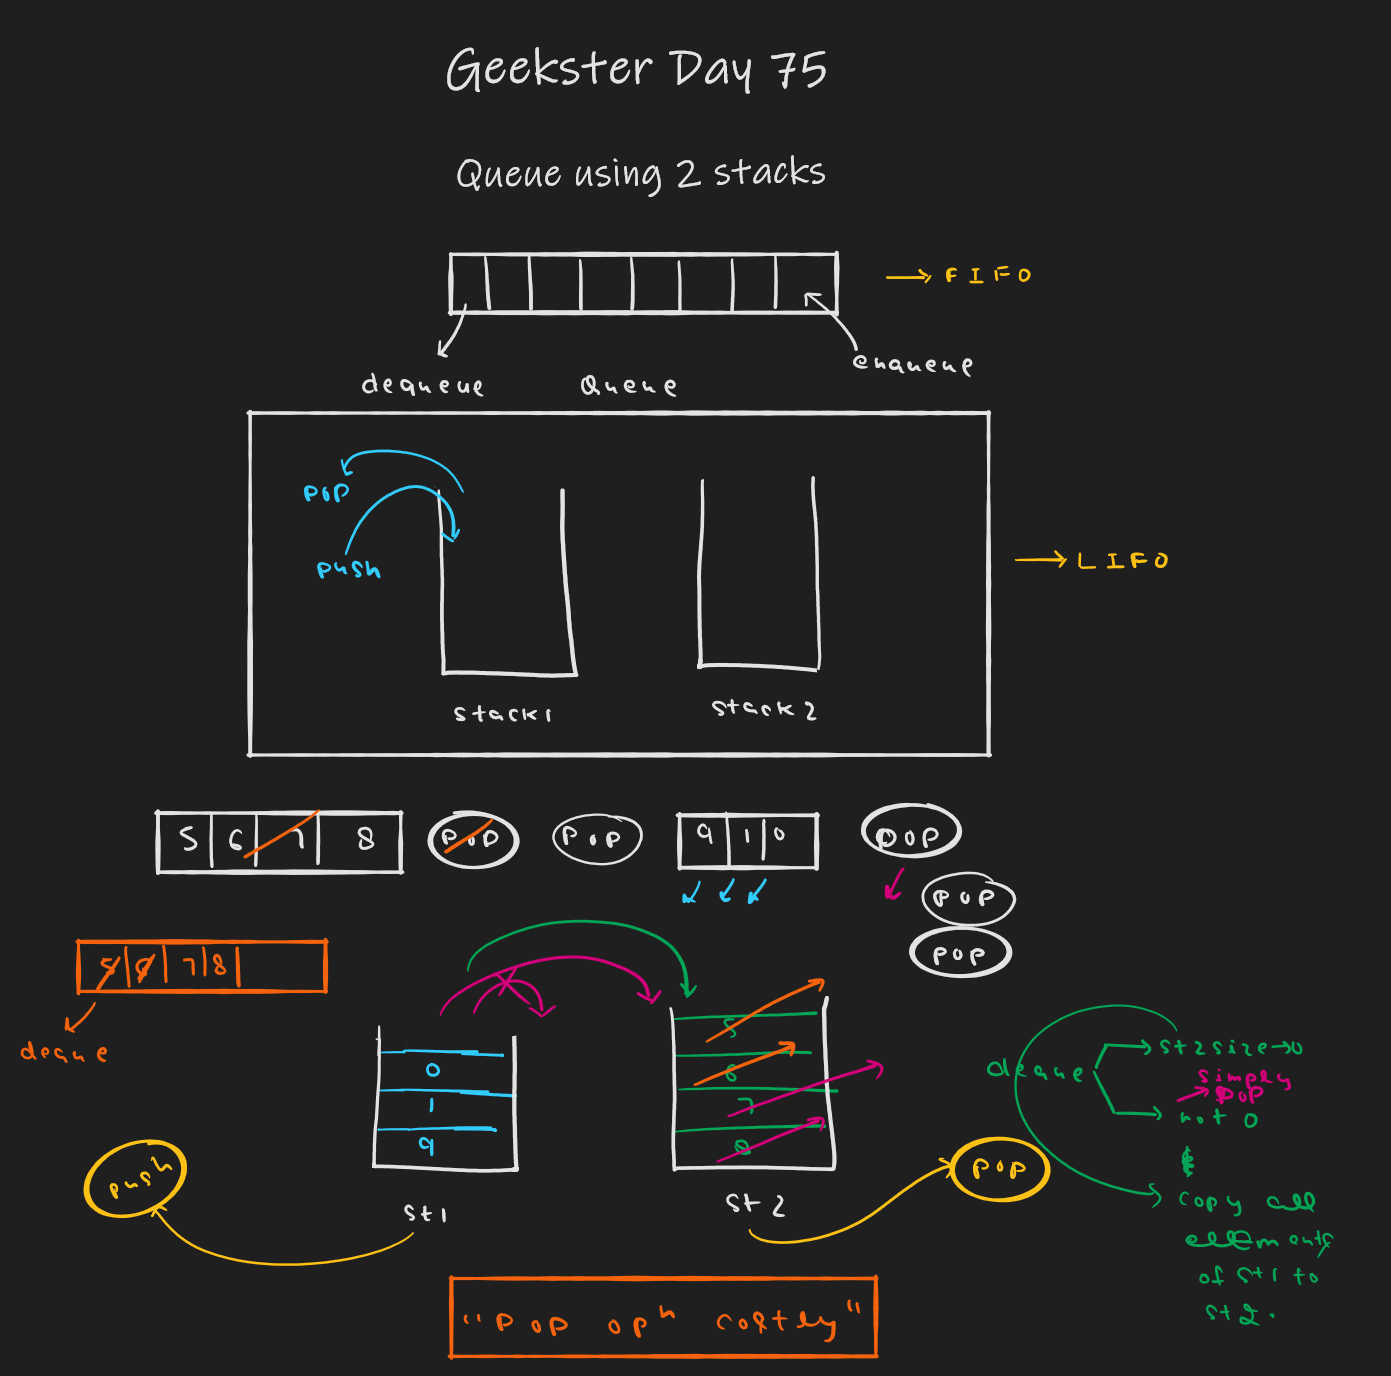 Geekster Day 75
Queue using 2 stacks
→ FIFO
dequeue Queue enqueue
POP
push
→ LIFO
stack1 stack2
5 6 7 8 POP POP 9 1 0 POP
POP
POP
5 6 7 8
deque
0
1
9
st1
push
5
6
7
8
st2
POP
deque
st2 size → 0
simply
POP
not 0
copy all
ellements
of st1 to
st2.
"POP opⁿ costly"